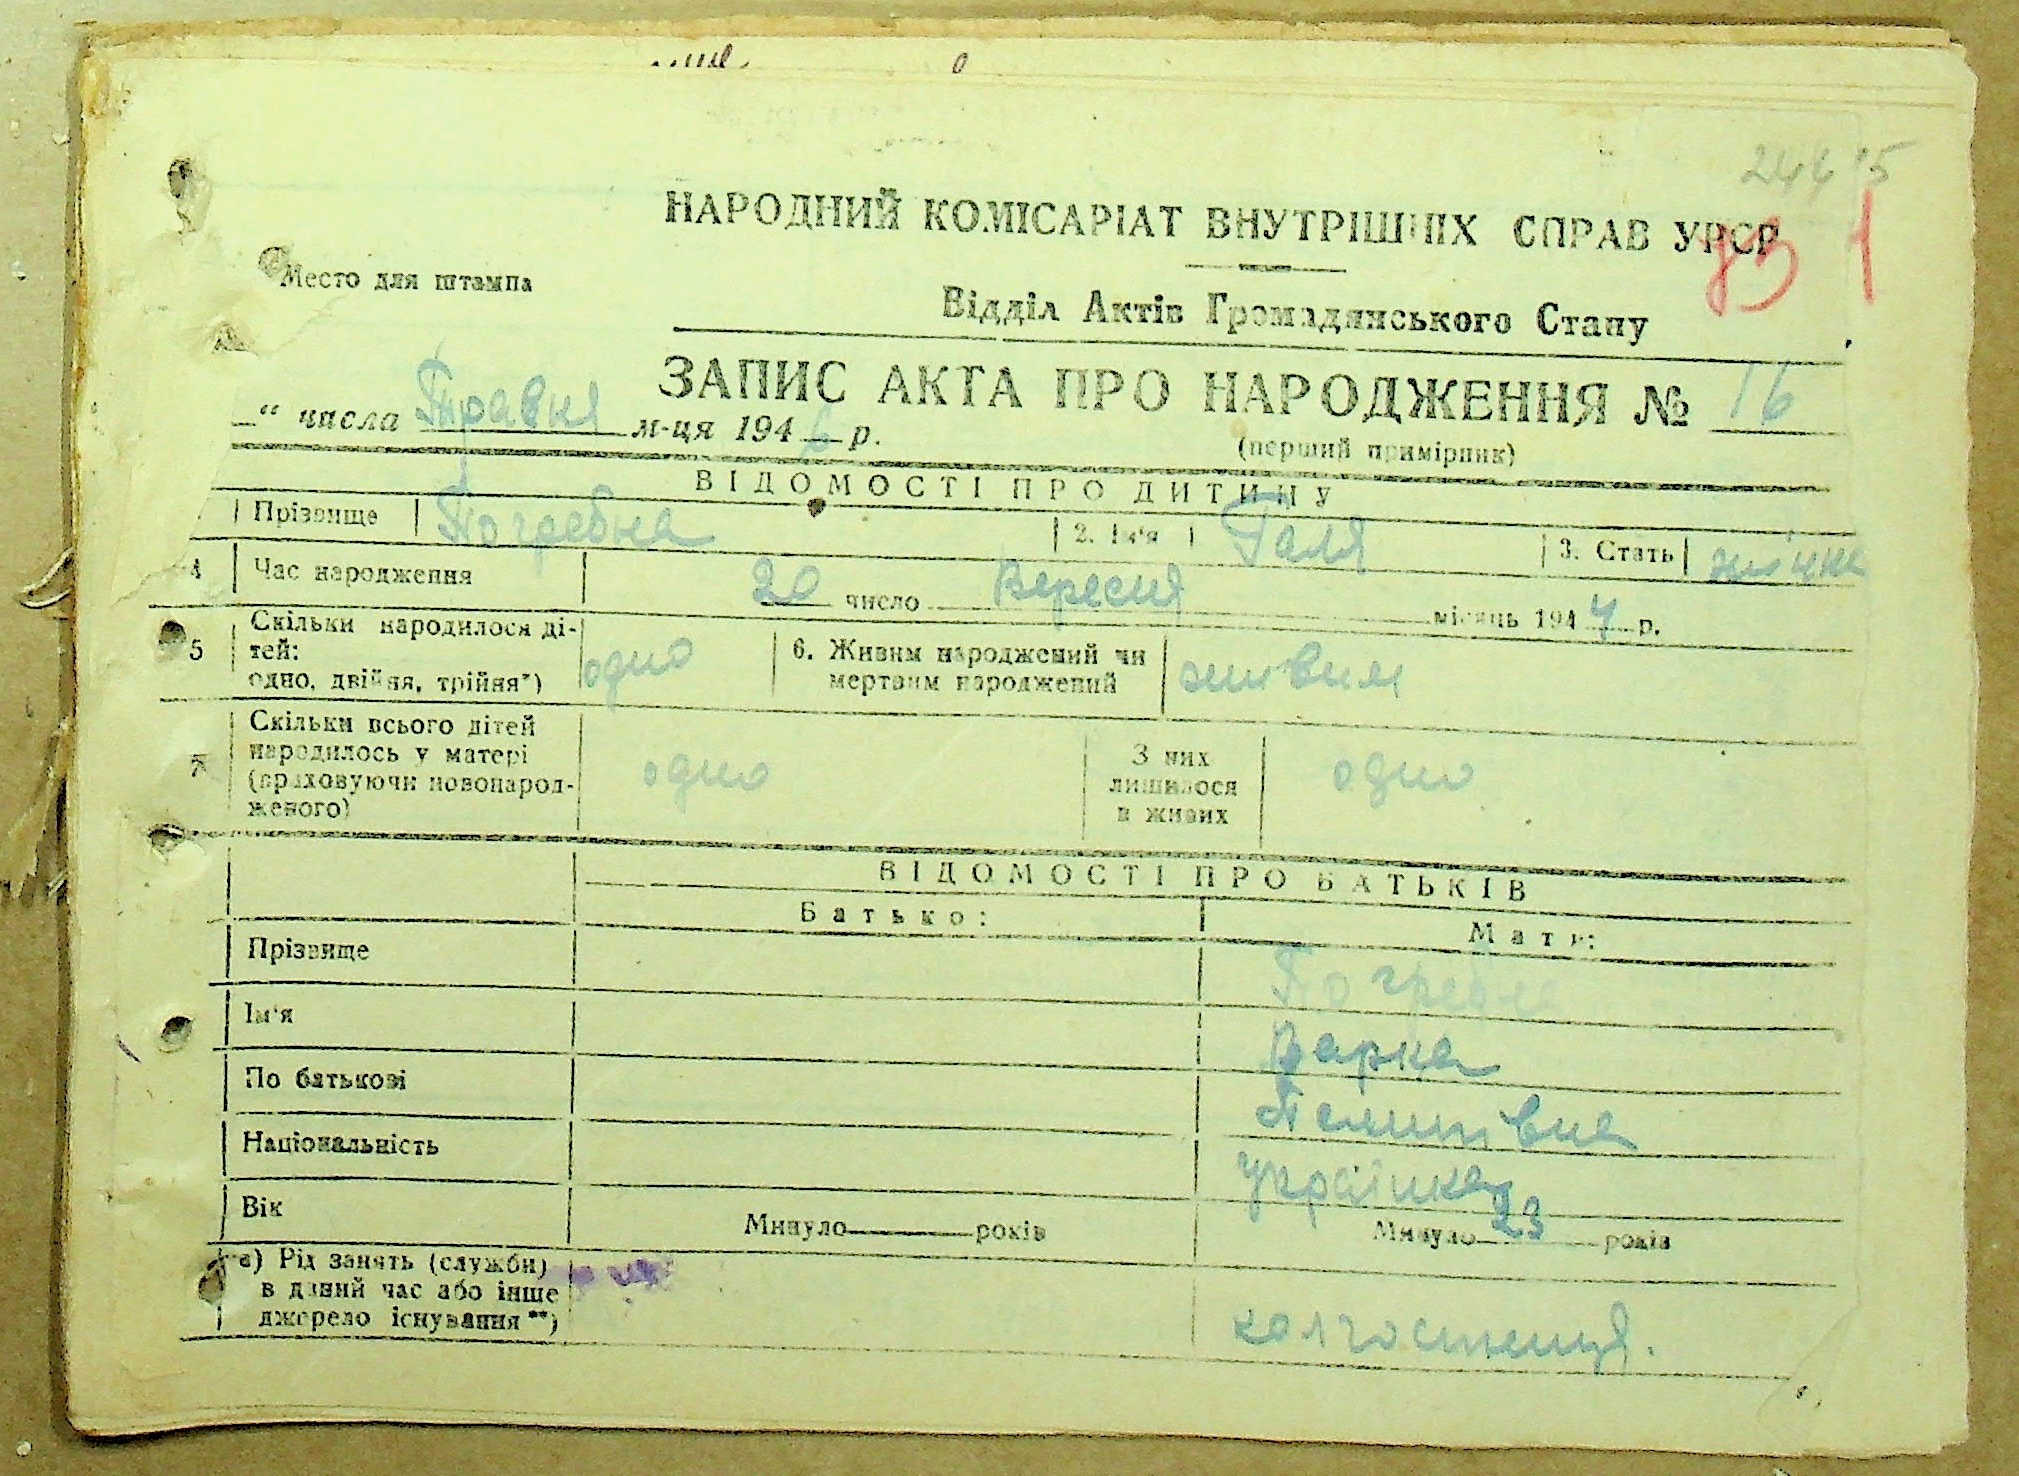 НАРОДНИЙ КОМІСАРІАТ ВНУТРІШНІХ СПРАВ УРСР
73 1
Место для штампа
Відділ Актів Громадянського Стану
ЗАПИС АКТА ПРО НАРОДЖЕННЯ № 16
“ числа Травня м-ця 194 р.
(перший примірник)
ВІДОМОСТІ ПРО ДИТИНУ
Прізвище Погребна 2. Ім'я Галя 3. Стать жіноча
4 Час народження 20 число Вересня місяць 1944 р.
5 Скільки народилося ді-
тей:
одно, двійня, трійня*) одно 6. Живим народжений чи
мертвим народжений живим
7 Скільки всього дітей
народилось у матері
(враховуючи новонарод-
женого) одно З них
лишилося
в живих одно
ВІДОМОСТІ ПРО БАТЬКІВ
Батько: Мати:
Прізвище Погребна
Ім'я Варка
По батькові
Національність українка
Вік Минуло років Минуло 23 років
а) Рід занять (служби)
в даний час або інше
джерело існування **) колгоспниця.